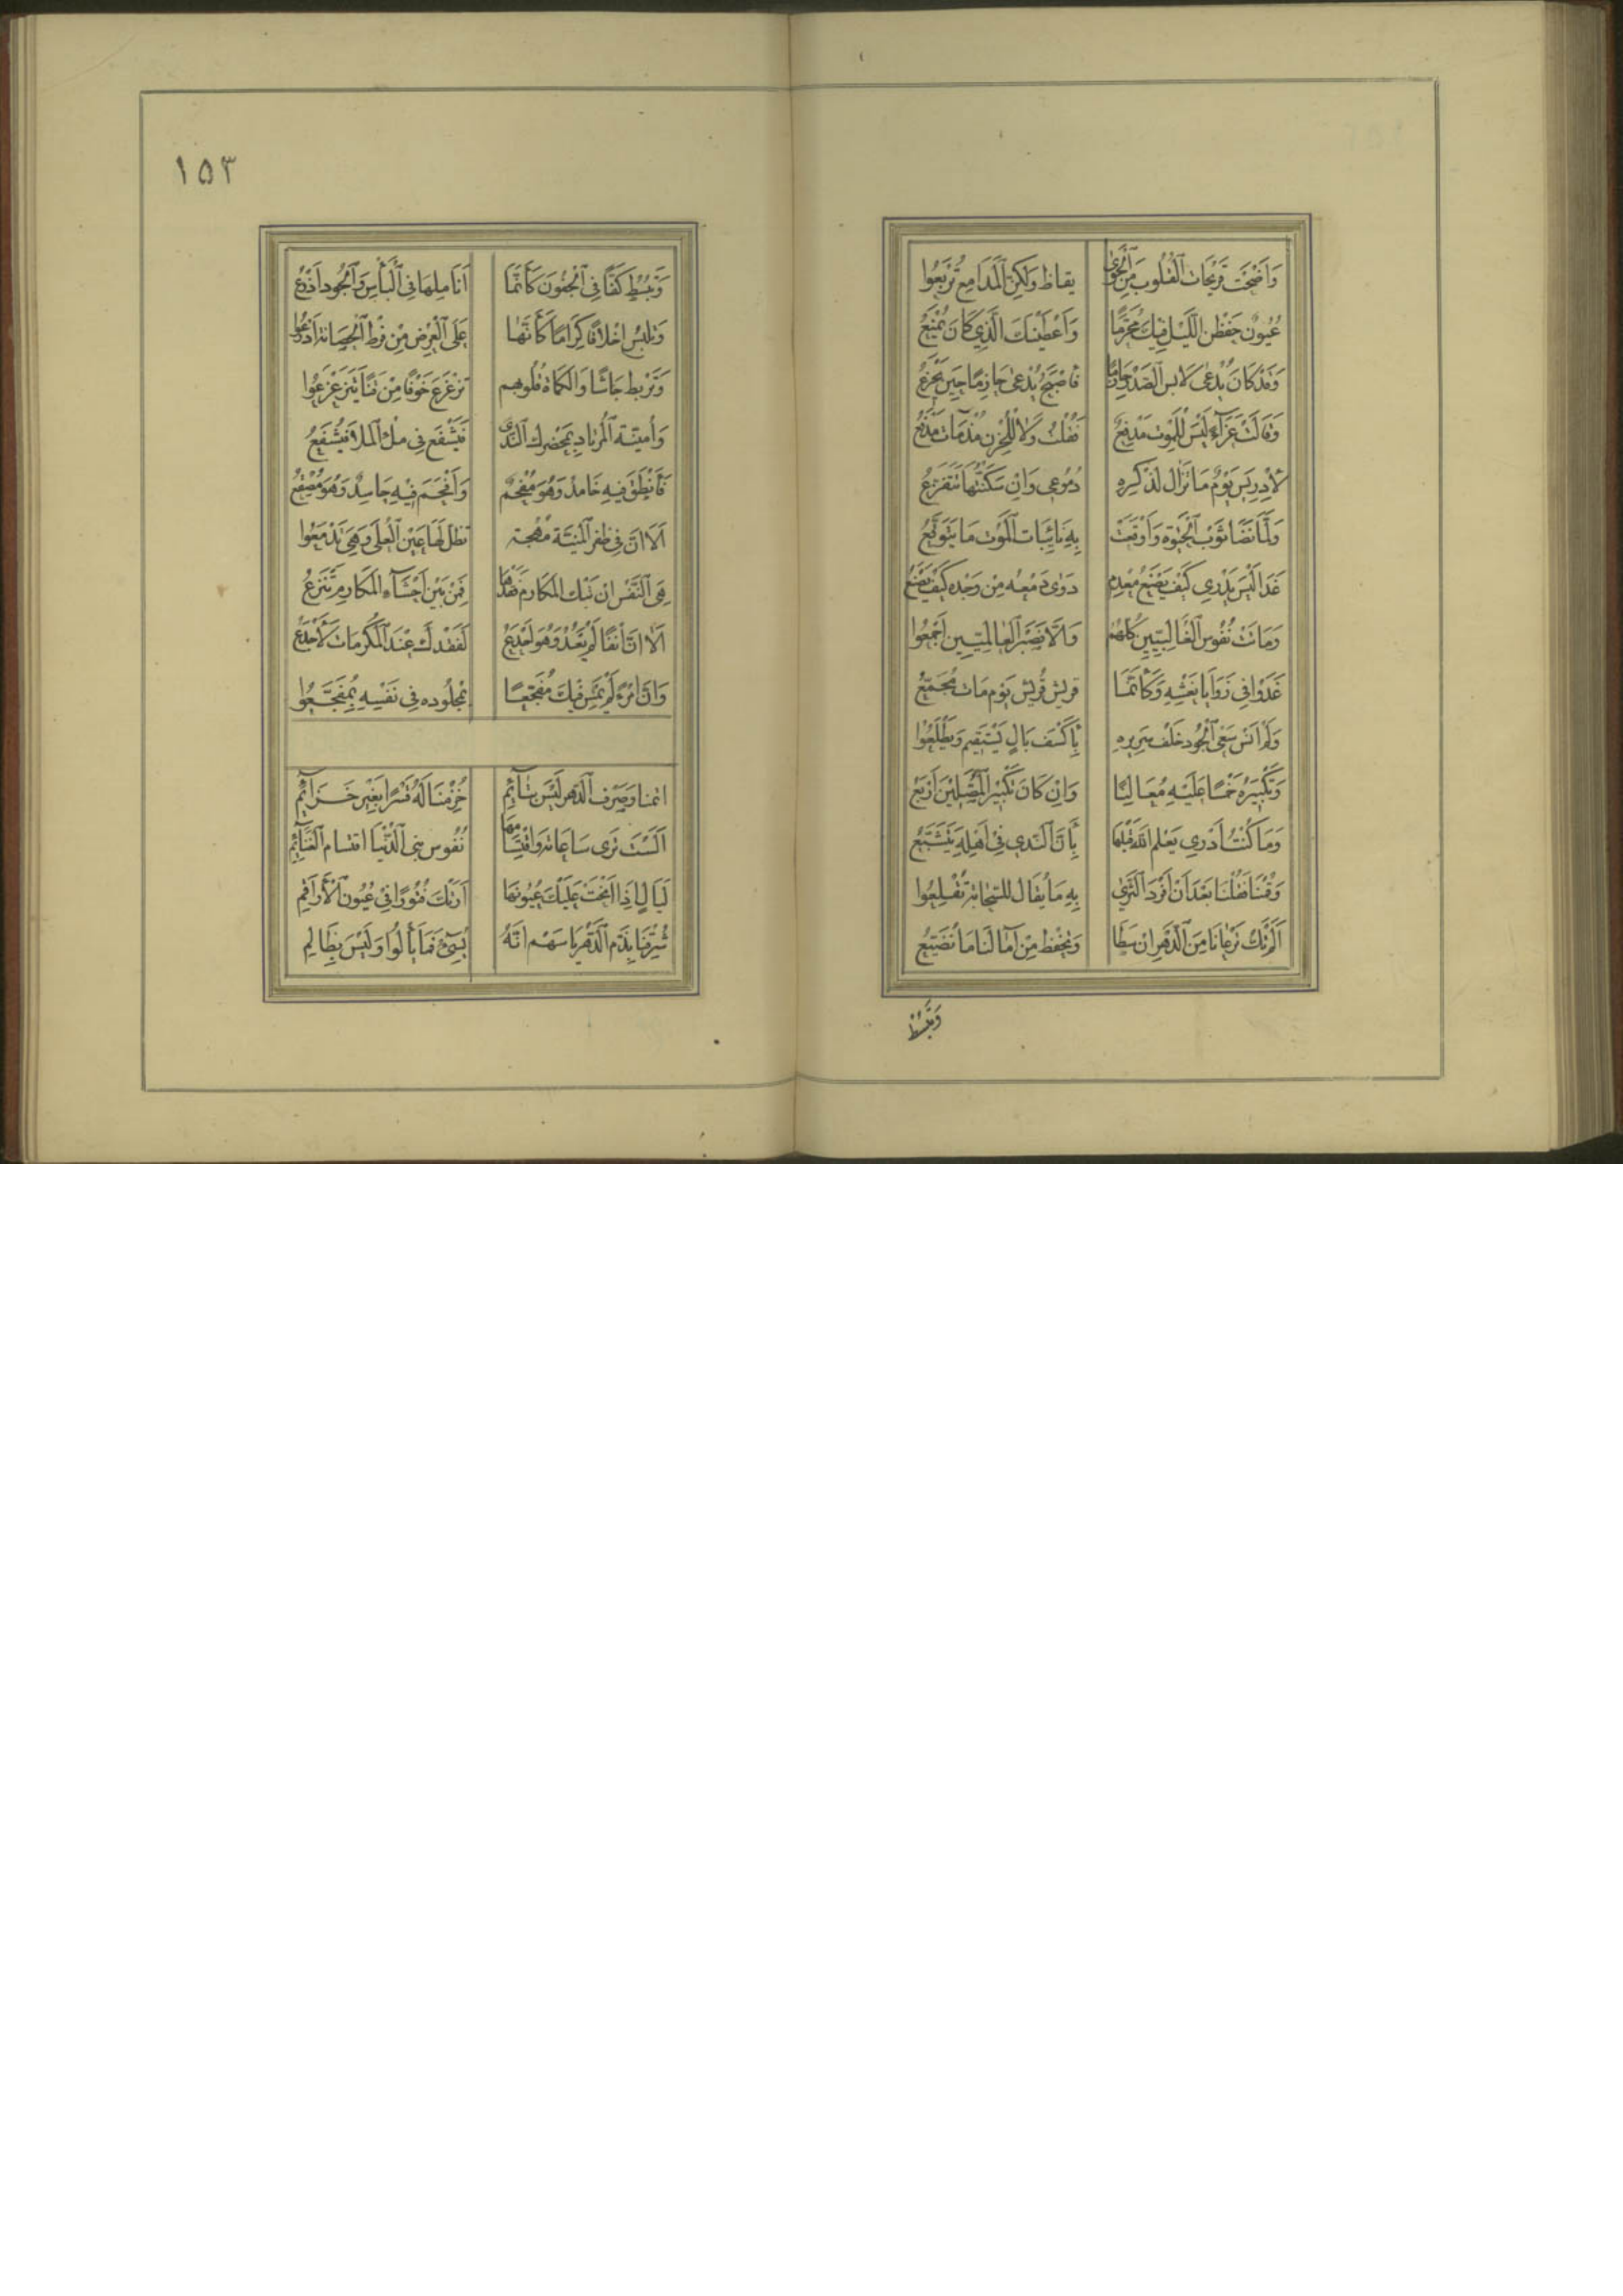 وَأَضْحَت قَرِيحَات ٱلْقُلُوب مِنَ ٱلْجَوَى يقاظ وَلَكِنّ ٱلْمَدَامِعَ تُرْبَعُوا
عُيُونٌ حَفِظْنَ اللَّيْل فِيكَ مُحَرَّمًا وَأَعْطَيْنَكَ الَّذِي كَانَ يُمْنَعُ
وَقَدْ كَانَ يُدْعَى لَابِسَ الصَّبْر حَازِمًا فَأَصْبَحَ يُدْعَى حَازِمًا حِينَ يَجْزَعُ
وَقَالَتْ عَزَآءً لَيْسَ لِلْمَوْتِ مَدْفَعٌ فَقُلْتُ وَلَا لِلْحُزْنِ مُذْ مَات مَدْفَعُ
لأدريس يَوْمٌ مَا تَزَال لذكره دُمُوعِى وَاِن سَكَّنْتُهَا تَتَفَرَّعُ
وَلَمَّا نَضَا ثَوْبَ ٱلْحَيٰوة وَأَوْقَعَتْ بِهِ نَائِبَات ٱلْمَوْت مَا يَتَوَقَّعُ
غَدَا لَيْسَ يَدْرِي كَيْفَ يَصْنَعُ مُعْدِم دَوٰى دَمْعُهُ مِنْ وَجْدِهِ كَيْفَ يَصْنَعُ
وَمَاتَتْ نُفُوس ٱلْغَالِبِيّين كُلّهُم وَإِلَّا فَصَبْرُ ٱلْعَالمِيّين أَجْمَعُوا
غَدَوْا فِى زَوَايَا نَعْشِهِ وَكَأَنَّمَا قريش قُرَيْش يَوْم مَات مُجَمِّع
وَلَمْ اَنْسَ سَعْىَ ٱلْجُود خَلْفَ سَرِيرِهِ بِأَكْسَف بَالٍ يَسْتَقِيم وَيَطْلَعُوا
وَتَكْبِيرَهُ خَمْسًا عَلَيْهِ مُعَالِنًا وَاِنْ كَانَ تَكْبِيرُ ٱلْمُصَلِّينَ أَرْبَعُ
وَمَا كُنْتُ أَدْرِي يَعْلَم ٱللّٰه قَبْلَهَا بِأَنَّ ٱلنَّدَى فِى أَهْلِهِ يَتَشَيَّعُ
وَقُمْنَا فَقُلْنَا بَعْدَ أَنْ أَفْرَدَ ٱلثَّرَى بِهِ مَا يُقَال للسّحَابَة تُقْلِعُوا
أَلَمْ تَكُ تَرْعَانَا مِنَ ٱلدَّهْرِ اِنْ سَطَا وَتَحْفَظ مِنْ آمَالنَا مَا نُضَيِّعُ
وَتَبْسُط
١٥٣
وَتَبْسُط كَفًّا فِى ٱلْجُفُون كَأَنَّمَا أَنَامِلهَا فِى ٱلْبَأْسِ وَٱلْجُودِ أَذْرُعُ
وَتَلْبَسُ اخْلَاقًا كِرَامًا كَأَنَّهَا عَلَى ٱلْعِرْضِ مِنْ فَرْط ٱلْحَصَانَة أَدْرُعُوا
وَتَرْبِط جَاشًا وَالْكُمَاة قُلُوبهم تزعزع خَوْفًا مِنْ قَنًا يَتَزَعْزَعُوا
وَأُمْنِيَّة ٱلْمُرْتَاد يحضرك ٱلنَّدَى فَيَشْفَع فِى مثل ٱلْمَلَا فَيُشَفَّعُ
فَأَنْطَقَ فِيهِ خَامِدٌ وَهُوَ مُفْحَمٌ وَأَفْحَمَ فِيهِ حَاسِدٌ وَهُوَ مِصْقَعُ
أَلَا اِنَّ فِى ظفر ٱلْمَنِيَّة مُهْجَة تظل لَهَا عَيْنُ ٱلْعُلَى وَهِىَ تَدْمَعُوا
هِىَ ٱلنَّفْس اِنْ تَبْكِ الْمَكَارِم فَقْدَهَا فَمِنْ بَيْن أَحْشَآء الْمَكَارِم تُنْزَعُ
أَلَا اِنَّ أَنْفًا لَمْ يَعُدْ وَهُوَ أَجْدَعُ لِفَقْدك عِنْدَ ٱلْمَكْرُمَات لَأَجْدَعُ
وَاِنَّ امْرَءً لَمْ يُمْسِ فِيكَ مُفَجَّعًا بمجلوده فِى نَفْسِهِ لَمُفَجَّعُوا
أئمنا وَصَرْف ٱلدَّهْر لَيْسَ بِنَآئِمِ خُزِمْنَا لَهُ قَسْرًا بِغَيْرِ خَزَآئِمِ
أَلَسْتَ تَرَى سَاعَاتِه وَاقْتِسَامَهَا نُفُوس بَنِى ٱلدُّنْيَا اقتسام ٱلْغَنَآئِمِ
لَيَالٍ اِذَا أَنْحَتْ عَلَيْكَ عُيُونهَا أَرَتْكَ فُتُورًا فِى عُيُون ٱلْأَرَاقِمِ
شُرِّفنَا بِذَمّ ٱلدَّهْر يَا سَهْم اِنَّهُ يُسِىءُ فَمَا يَأْلُوا وَلَيْسَ بِظَالِمِ